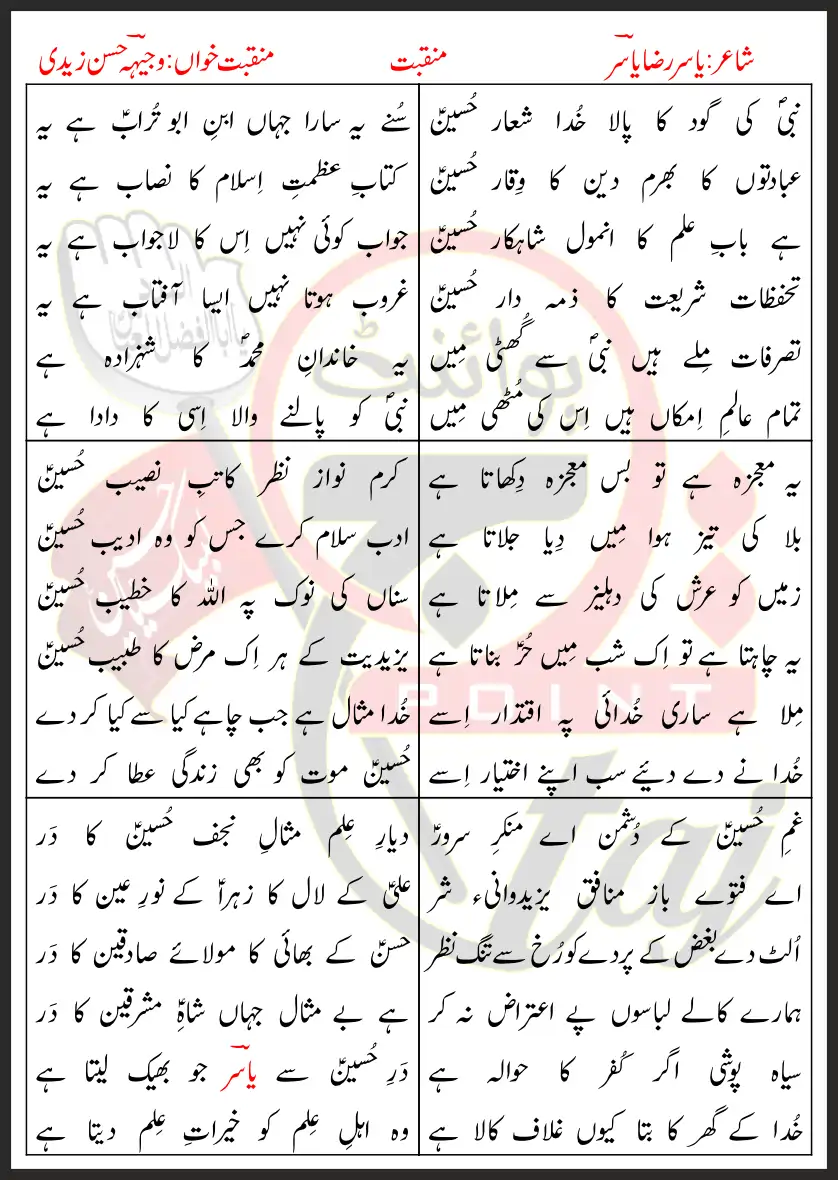 شاعر: یاسر رضا یاسرؔ
منقبت
منقبت خواں: وجیہہ حسن زیدی
نبیؐ کی گود کا پالا خُدا شعار حُسینؑ
عبادتوں کا بھرم دین کا وِقار حُسینؑ
ہے بابِ علم کا انمول شاہکار حُسینؑ
تحفظات شریعت کا ذمہ دار حُسینؑ
تصرفات مِلے ہیں نبیؐ سے گُھٹی مِیں
تمام عالمِ اِمکاں ہیں اِس کی مُٹھی مِیں
سُنے یہ سارا جہاں ابنِ ابو تُرابؑ ہے یہ
کتابِ عظمتِ اِسلام کا نصاب ہے یہ
جواب کوئی نہیں اِس کا لاجواب ہے یہ
غروب ہوتا نہیں ایسا آفتاب ہے یہ
یہ خاندانِ محمدؐ کا شہزادہ ہے
نبیؐ کو پالنے والا اِسی کا دادا ہے
یہ معجزہ ہے تو بس معجزہ دِکھاتا ہے
بلا کی تیز ہوا مِیں دِیا جلاتا ہے
زمیں کو عرش کی دہلیز سے مِلاتا ہے
یہ چاہتا ہے تو اِک شب مِیں حُرؑ بناتا ہے
مِلا ہے ساری خُدائی پہ اقتدار اِسے
خُدا نے دے دیئے سب اپنے اختیار اِسے
کرم نواز نظر کاتبِ نصیب حُسینؑ
ادب سلام کرے جس کو وہ ادیب حُسینؑ
سناں کی نوک پہ اللہ کا خطیب حُسینؑ
یزیدیت کے ہر اِک مرض کا طبیب حُسینؑ
خُدا مثال ہے جب چاہے کیا سے کیا کر دے
حُسینؑ موت کو بھی زندگی عطا کر دے
غمِ حُسینؑ کے دُشمن اے منکرِ سرورؑ
اے فتوے باز منافق یزیدوانیء شر
اُلٹ دے بغض کے پردے کو رُخ سے تنگ نظر
ہمارے کالے لباسوں پے اعتراض نہ کر
سیاہ پوشی اگر کُفر کا حوالہ ہے
خُدا کے گھر کا بتا کیوں غلاف کالا ہے
دیارِ عِلم مثالِ نجف حُسینؑ کا دَر
علیؑ کے لال کا زہراؑ کے نورِ عین کا دَر
حسنؑ کے بھائی کا مولائے صادقین کا دَر
ہے بے مثال جہاں شاہِؑ مشرقین کا دَر
دَرِ حُسینؑ سے یاسرؔ جو بھیک لیتا ہے
وہ اہلِ عِلم کو خیراتِ عِلم دیتا ہے
پوائنٹ
POINT
taj